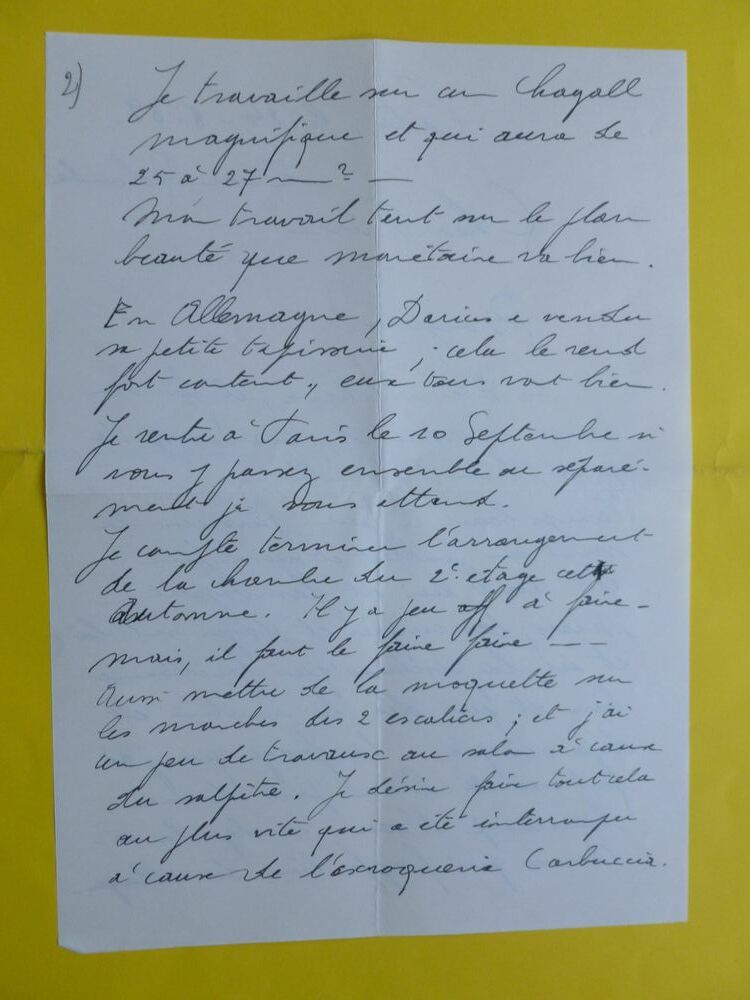 2)
Je travaille sur un Chagall
magnifique et qui aura de
25 à 27 m² —
Mon travail tant sur le plan
beauté que monétaire va bien.
En Allemagne, Darius a vendu
sa petite tapisserie, cela le rend
fort content, eux tous vont bien.
Je rentre à Paris le 10 Septembre si
vous y passez ensemble ou séparé-
ment je vous attend.
Je compte terminer l'arrangement
de la chambre du 2e étage cette
Automne. Il y a peu à faire -
mais, il faut le faire faire — —
Aussi mettre de la moquette sur
les marches des 2 escaliers ; et j'ai
un peu de travaux au salon à cause
du salpêtre. Je désire faire tout cela
au plus vite qui a été interrompu
à cause de l'escroquerie Carbuccia.